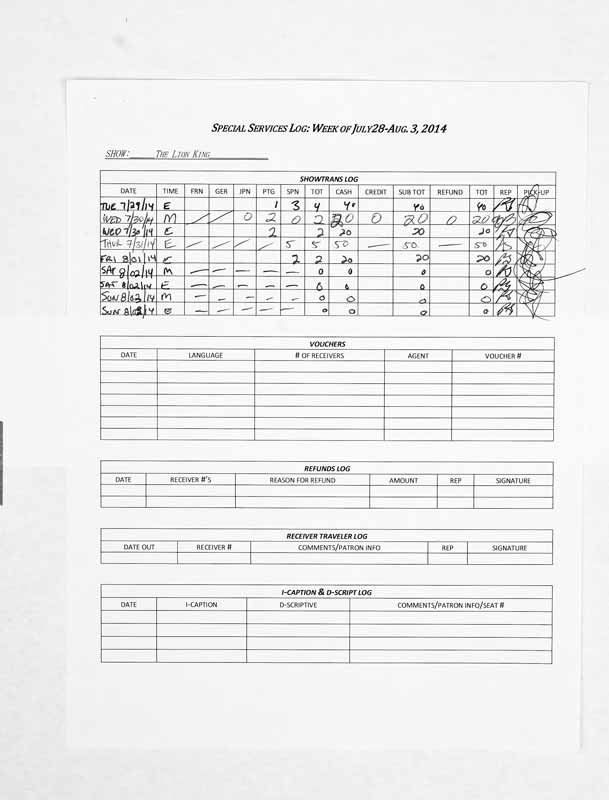 SPECIAL SERVICES LOG: WEEK OF JULY28-AUG. 3, 2014
SHOW: THE LION KING
SHOWTRANS LOG
DATE TIME FRN GER JPN PTG SPN TOT CASH CREDIT SUB TOT REFUND TOT REP PICK-UP
TUE 7/29/14 E 1 3 4 40 40 40
WED 7/30/14 M / / 0 2 0 2 20 0 20 0 20
WED 7/30/14 E 2 2 20 20 20
THUR 7/31/14 E — / / / 5 5 50 — 50 — 50
FRI 8/01/14 E 2 2 20 20 20
SAT 8/02/14 M — — — — — 0 0 0 0
SAT 8/02/14 E — — — — — 0 0 0 0
SUN 8/03/14 M — - — — — 0 0 0 0
SUN 8/03/14 E — — — — — 0 0 0 0
VOUCHERS
DATE LANGUAGE # OF RECEIVERS AGENT VOUCHER #
REFUNDS LOG
DATE RECEIVER #'S REASON FOR REFUND AMOUNT REP SIGNATURE
RECEIVER TRAVELER LOG
DATE OUT RECEIVER # COMMENTS/PATRON INFO REP SIGNATURE
I-CAPTION & D-SCRIPT LOG
DATE I-CAPTION D-SCRIPTIVE COMMENTS/PATRON INFO/SEAT #